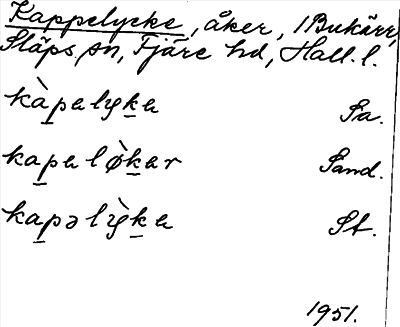 Kappelycke, åker, 1 Bukärr,
Släps sn, Fjäre hd, Hall. l.
kàpalyka Sa.
kapaløkar Sand.
kapəlỳka St.
1951.